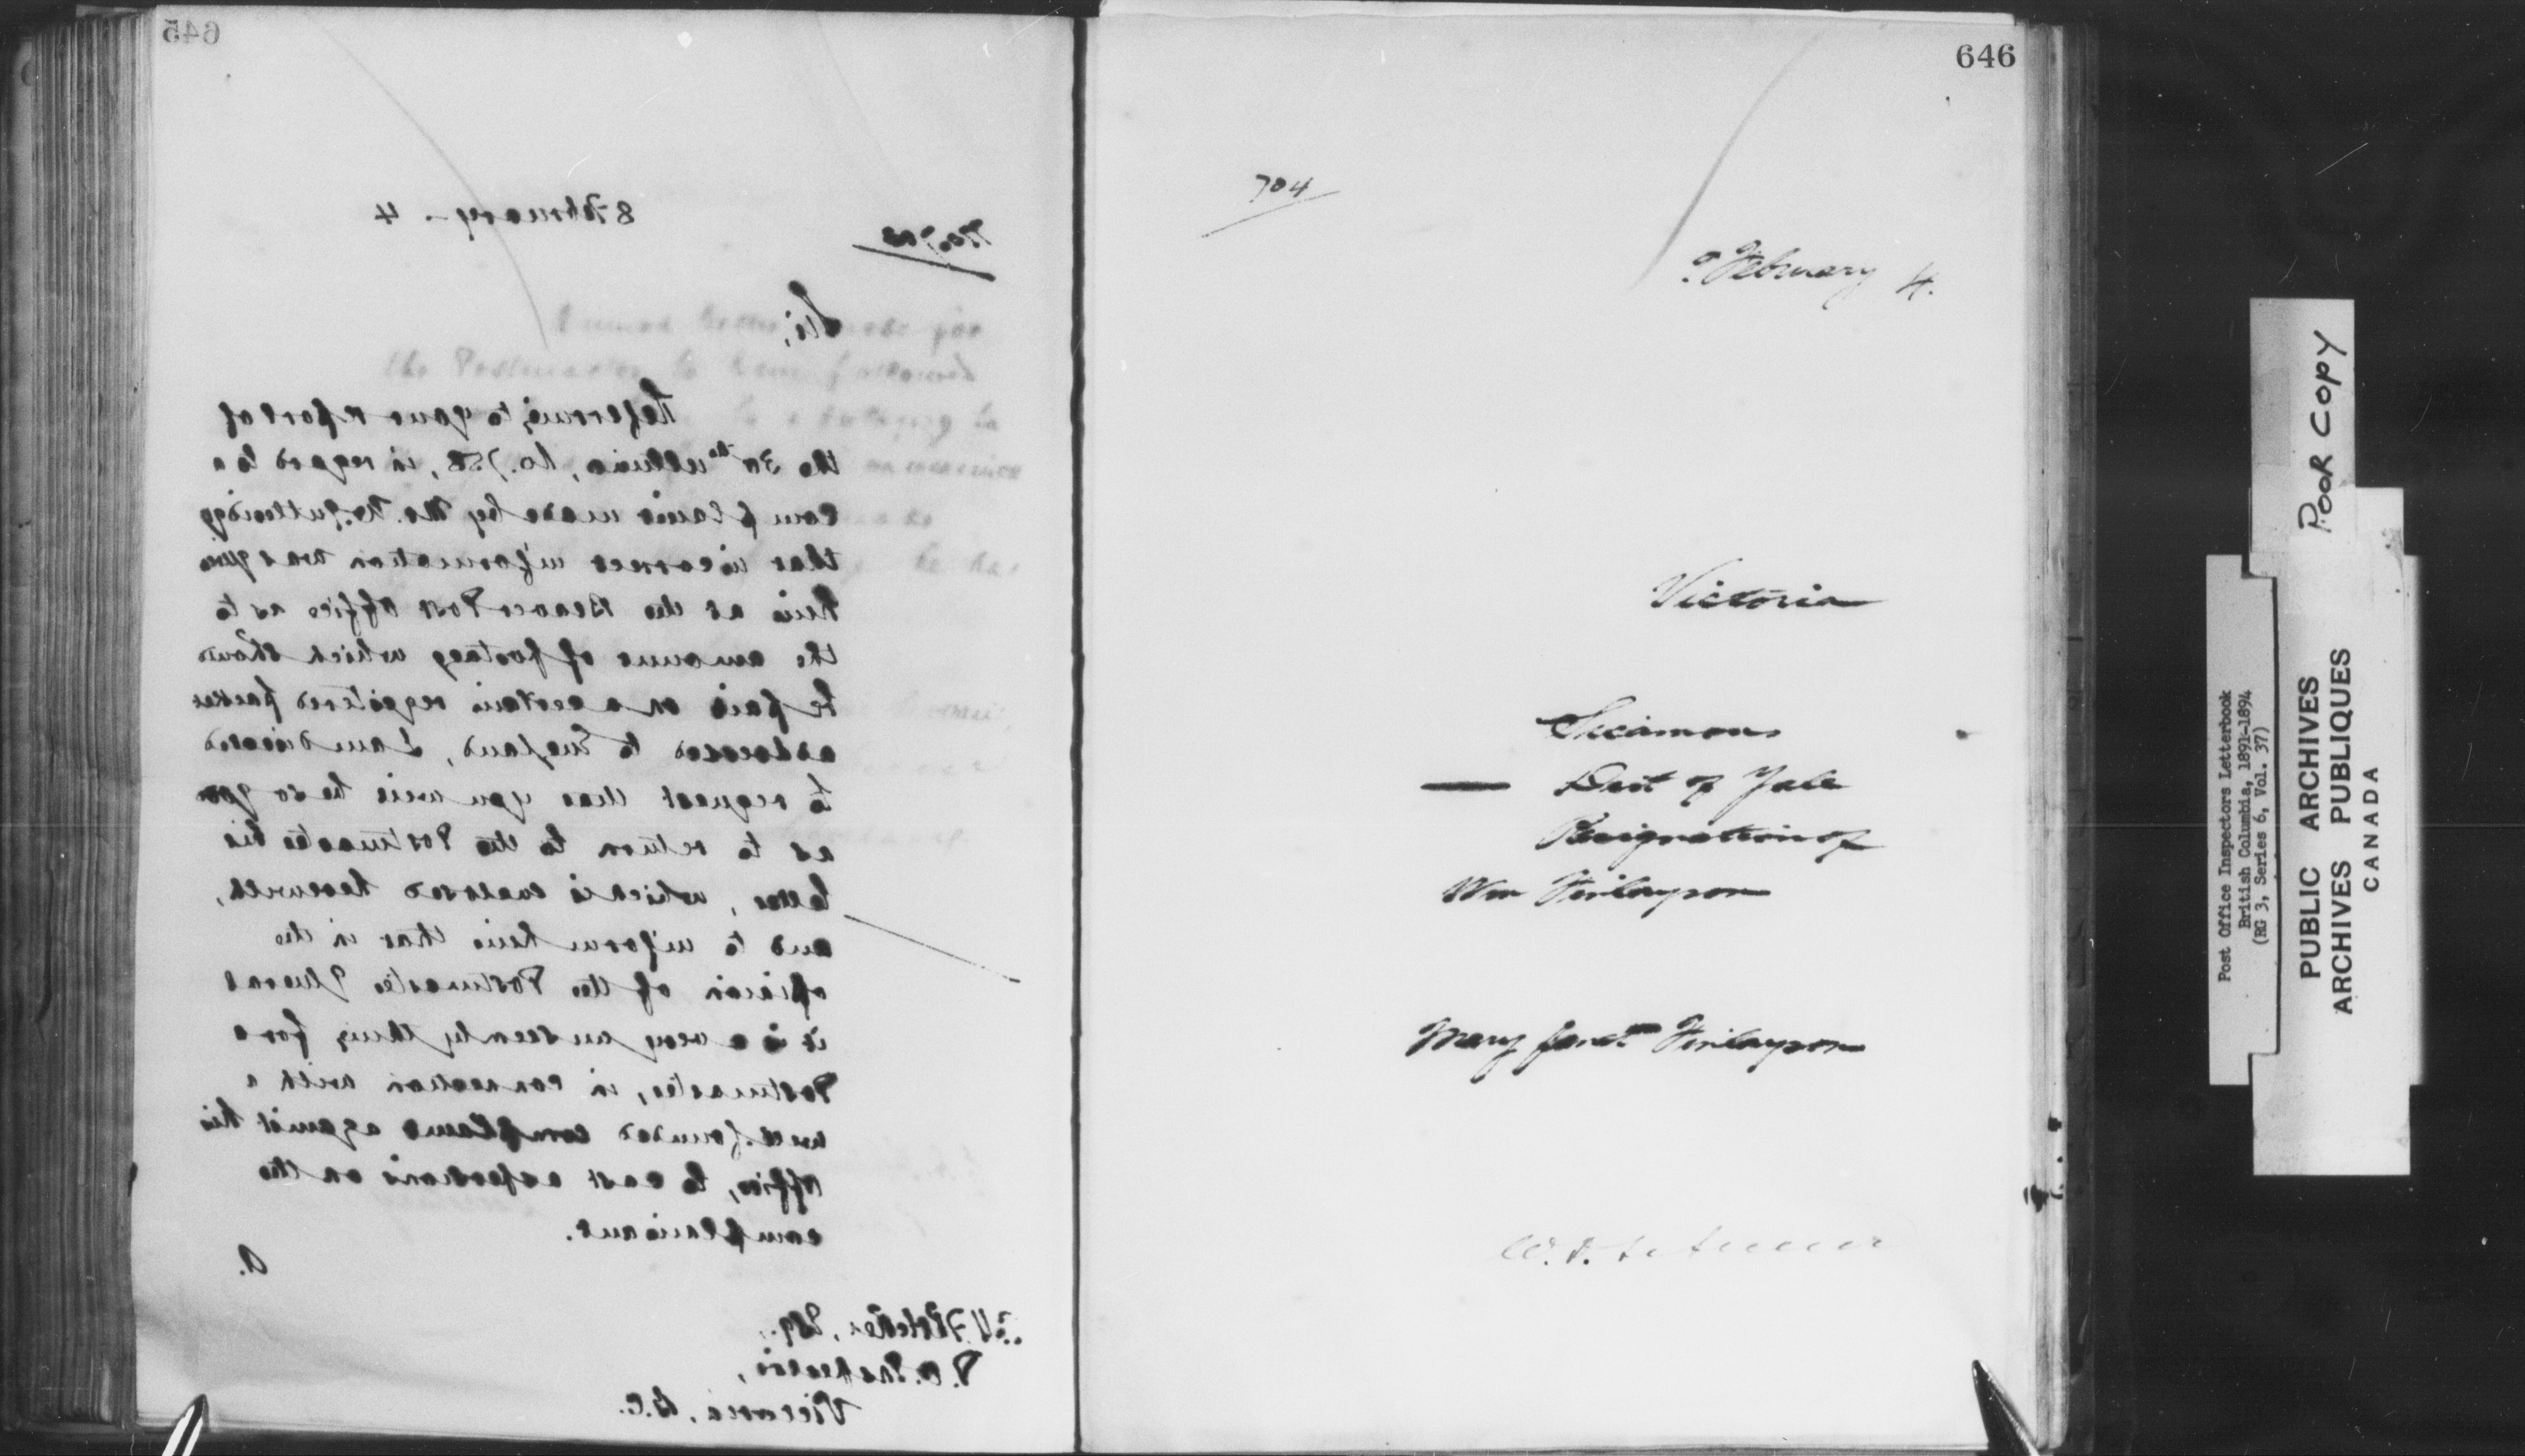 645
8 February - 4
No. 703
Sir,
Referring to your report of
the 30th ultimo, No. 758, in regard to a
complaint made by Mr. W. Gutteridge
that incorrect information was given
him at the Beaver Post Office as to
the amount of postage which should
be paid on a certain registered packet
addressed to England, I am directed
to request that you will be so good
as to return to the Postmaster his
letter, which is enclosed herewith,
and to inform him that in the
opinion of the Postmaster General
it is a very unseemly thing for a
Postmaster, in connection with a
well founded complaint against his
office, to cast aspersions on the
complainant.
E.H. Fletcher, Esq.,
P.O. Inspector,
Victoria, B.C.
646
704
9 February 4.
Victoria
Sicamous
Dist of Yale
Resignation of
Wm Finlayson
Mary Janet Finlayson
Post Office Inspectors Letterbook
British Columbia, 1891-1894
(RG 3, Series 6, Vol. 37)
POOR COPY
PUBLIC ARCHIVES
ARCHIVES PUBLIQUES
CANADA